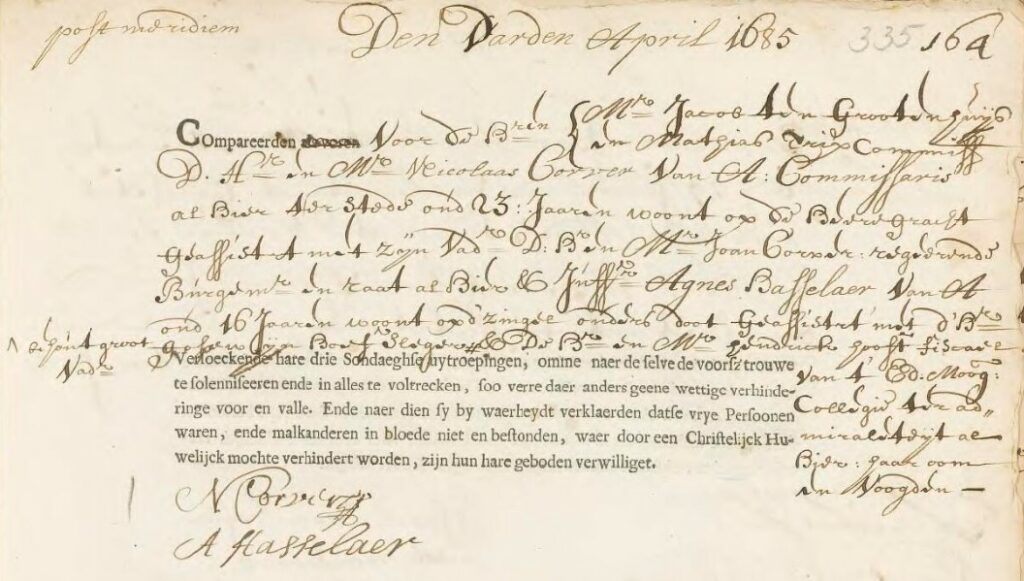 post meridiem
Den Varden April 1685 335 164
Compareerden als voren Voor de Hren Mr. Jacob ten Grootenhuijs
en Mathias Trip Commiss
D. Hr. en Mr. Nicolaas Corver van A: Commissaris
al hier ter stede oud 23: Jaaren woont op de Heeregracht
Geassistrt met zijn Vadr D: Hr en Mr. Joan Corver: regeerende
Burgemr en raat al hier & Juffr Agnes Hasselaer van A
oud 16 Jaaren woont opd' zingel ouders doot Geassistrt met d'Hr
^ behout groot Vadr
en Mr. Hendrick hooft fiscael
van t' Ed: Moog:
Collegie ter ad„
miraliteyt al
hier: haar oom
en Voogden —
Versoeckende hare drie Sondaeghse uytroepingen, omme naer de selve de voorsz trouwe
te solenniseeren ende in alles te voltrecken, soo verre daer anders geene wettige verhinde-
ringe voor en valle. Ende naer dien sy by waerheydt verklaerden datse vrye Persoonen
waren, ende malkanderen in bloede niet en bestonden, waer door een Christelijck Hu-
welijck mochte verhindert worden, zijn hun hare geboden verwilliget.
N Corver
A Hasselaer